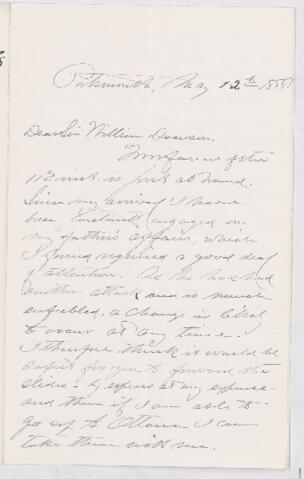 Portsmouth, May 12th 1888
Dear Sir William Dawson.
Your favor of the
11th inst. is just at hand.
Since my arrival I have
been constantly engaged on
my father's affairs, which
I found required a good deal
of attention. As he has had
another attack and is much
enfeebled, a change is likely
to occur at any time.
I therefore think it would be
safest for you to forward the
slides by express at my expense
and then if I am able to
go up to Ottawa I can
take them with me.